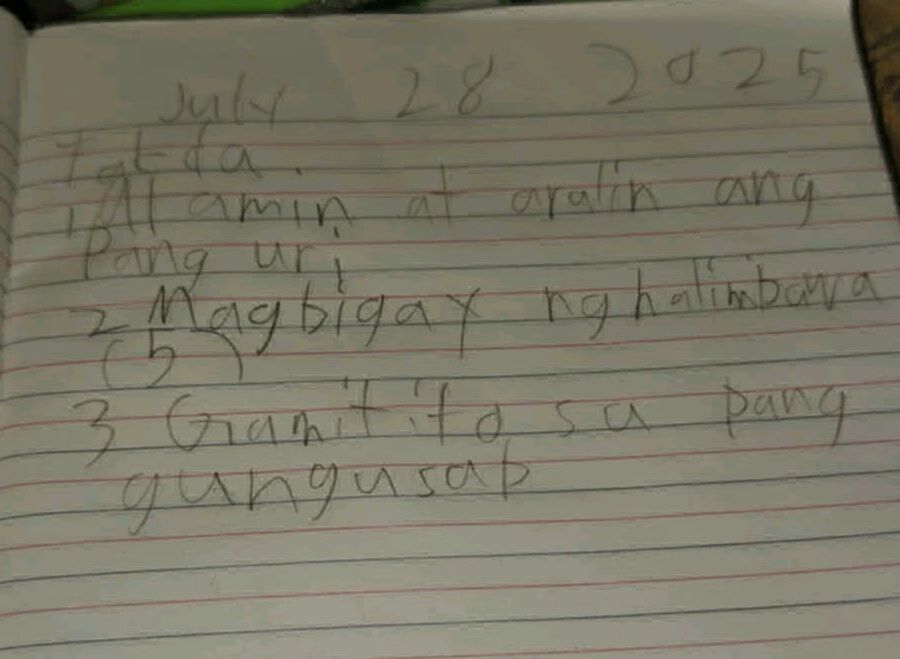 July 28 2025
Tatda.
1, Al amin at aralin ang
Pang uri
2 Magbigay ng halimbawa
(5)
3 Gamit ito sa pang
gungusap